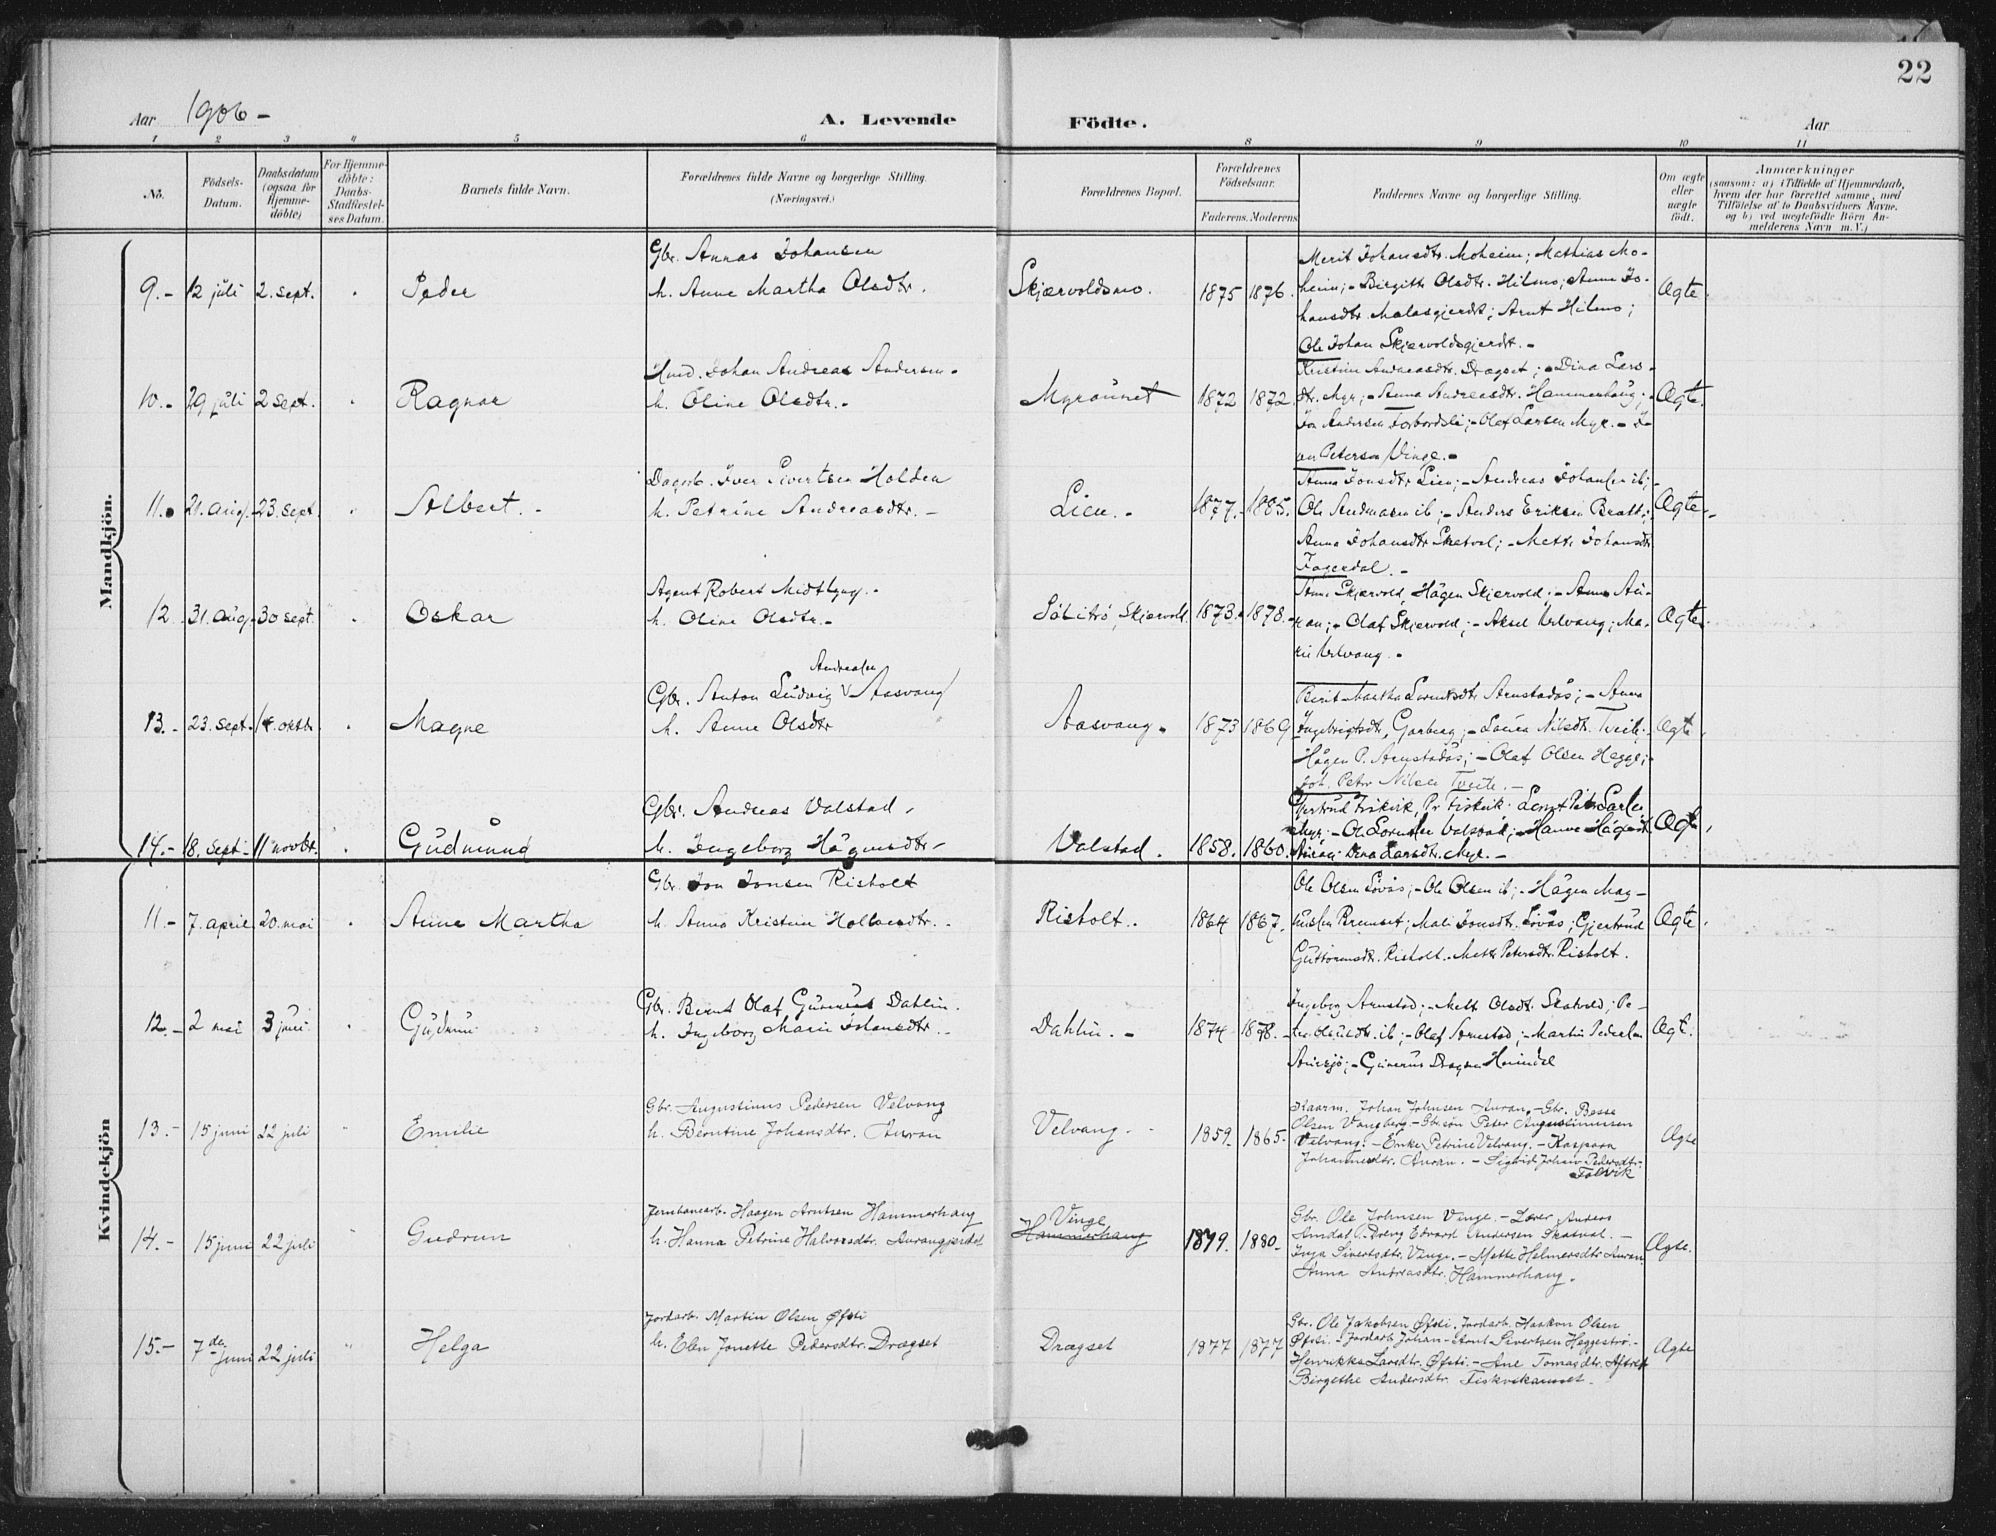 22
Aar 1906 -
A. Levende Födte.
Aar
1 2 3 4 5 6 8 9 10 11
No.
Födsels-Datum.
Daabsdatum (ogsaa for Hjemme-döbte)
For Hjemme-döbte: Daabs-Stadfæstel-ses Datum.
Barnets fulde Navn.
Forældrenes fulde Navne og borgerlige Stilling. (Næringsvei.)
Forældrenes Bopæl.
Forældrenes Födselsaar.
Faderens. Moderens
Faddernes Navne og borgerlige Stilling.
Om ægte eller uægte födt.
Anmærkninger
(saasom: a) i Tilfælde af Hjemmedaab,
hvem der har forrettet samme, med
Tilföielse af to Daabsvidners Navne.
og b) ved uægtefödte Börn An-
melderens Navn m.V.)
Mandkjön.
9.- 12 juli 2. sept. Peder
Gbr. Annas Johansen
h. Anne Martha Olsdtr.
Skjærvoldsmo. 1875 1876.
Merit Johansdtr. Moheim; Mathias Mo-
heim; - Birgitte Olsdtr. Hilmo; Anne Jo-
hansdtr. ; Arnt Hilmo;
Ole Johan Skjærvoldsgjerdt. -
Ægte.
10.- 29 juli 2 sept. Ragnar
Johan Andreas Andersen.
h. Oline Olsdtr. -
Myraunet 1872 1872.
Kristine Andreasdtr. Dragset; - Dina Lars-
dtr. Myr; - Anna Andreasdtr. Hammerhaug;
Andersen Forbordsli; - Olaf Larsen Myr. -
Petersen Vinge. -
Ægte.
11. 21. aug. 23. sept. Albert. -
Dagarb. Iver Sivertsen Holden
h. Petrine Andreasdtr. -
Lien. - 1877. - 1885.
Anna Jonsdtr. Lien; - Andreas Johansen ib; -
Ole Andreasen ib; - Anders Eriksen Bratli;
Anna Johansdtr. Skatval; - Mette Johansdtr
Fagerdal. -
Ægte.
12 31. aug. 30 sept. Oskar
Agent Robert Midthaug. -
h. Oline Olsdtr. -
Skjærvold. 1873. - 1878. -
Skjærvold, Hågen Skjærvold; - Anna Au-
ran; - Olaf Skjærvold; - Aksel Velvang; Ma-
rie Velvang. -
Ægte.
13. - 23. sept. 14. oktbr. Magne
Gbr. Anton Ludvig Andreasen Aasvang
h. Anne Olsdtr
Aasvang. 1873 1869
Berit Martha Lorntsdtr. Arnstadås; - Anna
Ingebrigtsdtr. Garberg; - Laura Nilsdtr. Tveite;
Hågen P. Arnstadås; - Olaf Olsen Hegge;
Joh. Peter Nilsen Tveite. -
Ægte.
14. - 18. sept. - 11 novbr. Gudmund
Gbr. Andreas Valstad.
h. Ingeborg Hågensdtr -
Valstad. 1858. 1860.
Gjertrud Fiskvik, Pr Fiskvik. Lornt Peter Larsen
Myr; - Ole Lorntsen Valstad; - Hanna Hågensdtr.
Dina Larsdtr. Myr. -
Ægte.
Kvindekjön
11. - 7. april 20. mai Anne Martha
Gbr. Jon Jonsen Risholt
h. Anna Kristine Hallvardtr. .
Risholt. 1864 1867.
Ole Olsen Lövås; - Ole Olsen ib; - Hågen Mag-
nusen Remset; Mali Jonsdtr. Lövås; Gjertrud
Guttormsdtr. Risholt. - Mette Petersdtr. Risholt.
Ægte.
12. - 2 mai 3 juni Gudrun
Gbr. Bernt Olaf Gunerius Dahlin.
h. Ingeborg Marie Johansdtr.
Dahlin. - 1874 1878. -
Ingeborg Arnstad; - Mette Olsdtr. Skatval; Pe-
ib; - Olaf Arnstad; - Martin Pedersen
; - Gunerus
Ægte.
13. - 15 juni 22 juli Emilie
Gbr. Augustinus Pedersen Velvang
h. Berntine Johansdtr. Auran
Velvang. 1859. 1865.
Kaarm. Johan Johnsen Auran. - Gbr. Besse
Olsen Vangberg - Gbrsøn Peter Augustinussen
Velvang. - Enke Petrine Velvang. - Kaspara
Johannesdtr. Auran. - Sigrid Johan. Pedersdtr.
Faldvik
Ægte
14. - 15 juni 22 juli Gudrun
Jernbanearb. Haagen Arntsen Hammerhaug
h. Hanna Petrine Halvorsdtr. Aurangjerdet
Vinge
Hammerhaug 1879. 1880.
Gbr. Ole Johnsen Vinge. - Lærer Anders
Amdal. - Dreng Edvard Andersen Skatval. -
Inga Sivertsdtr. Vinge. - Mette Helmersdtr Auran
Anna Andreasdtr. Hammerhaug.
Ægte.
15. - 7de juni 22 juli Helga
Jordarb. Martin Olsen Øfsti
h. Elen Jonette Pedersdtr. Dragset
Dragset 1877 1877
Gbr. Ole Jakobsen Øfsti. Jordarb. Haakon Olsen
Øfsti. - Jordarb. Johan - Arnt Sivertsen Heggestrø. -
Henrikke Larsdtr. Øfsti. - Ane Tomasdtr.
Birgethe Andersdtr. Fiskvikaunet.
Ægte